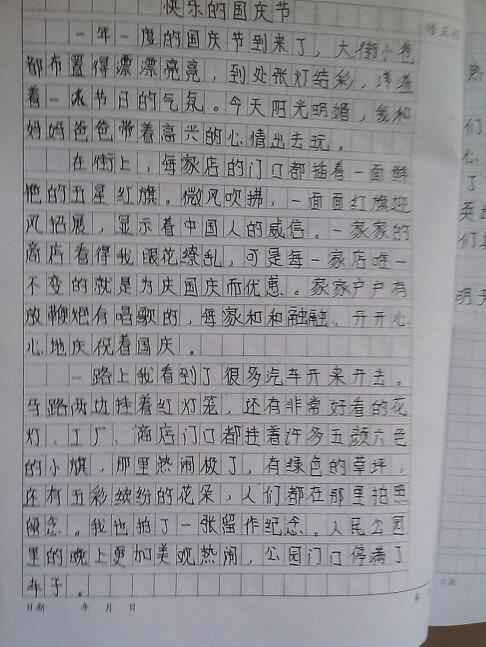 快乐的国庆节
一年一度的国庆节到来了,大街小巷
都布置得漂漂亮亮,到处张灯结彩,洋溢
着一派节日的气氛。今天阳光明媚,我和
妈妈爸爸带着高兴的心情出去玩。
在街上,每家店的门口都插着一面鲜
艳的五星红旗。微风吹拂,一面面红旗迎
风招展,显示着中国人的威信。一家家的
商店看得我眼花缭乱,可是每一家店唯一
不变的就是为庆国庆而优惠。家家户户有
放鞭炮有唱歌的,每家和和融融、开开心
心地庆祝着国庆。
一路上我看到了很多汽车开来开去。
马路两边挂着红灯笼,还有非常好看的花
灯、工厂、商店门口都挂着许多五颜六色
的小旗,那里热闹极了,有绿色的草坪,
还有五彩缤纷的花朵,人们都在那里拍照
留念。我也拍了一张留作纪念。人民公园
里的晚上更加美观热闹,公园门口停满了
车子。
日期: 年 月 日